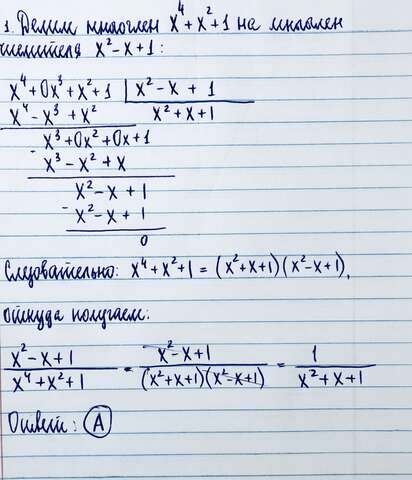 1. Делим многочлен x⁴+x²+1 на многочлен
числителя x²-x+1:
x⁴+0x³+x²+1 | x²-x+1
x⁴-x³+x² x²+x+1
x³+0x²+0x+1
- x³-x²+x
x²-x+1
- x²-x+1
0
Следовательно: x⁴+x²+1=(x²+x+1)(x²-x+1),
откуда получаем:
(x²-x+1)/(x⁴+x²+1) = (x²-x+1)/((x²+x+1)(x²-x+1)) = 1/(x²+x+1)
Ответ: A